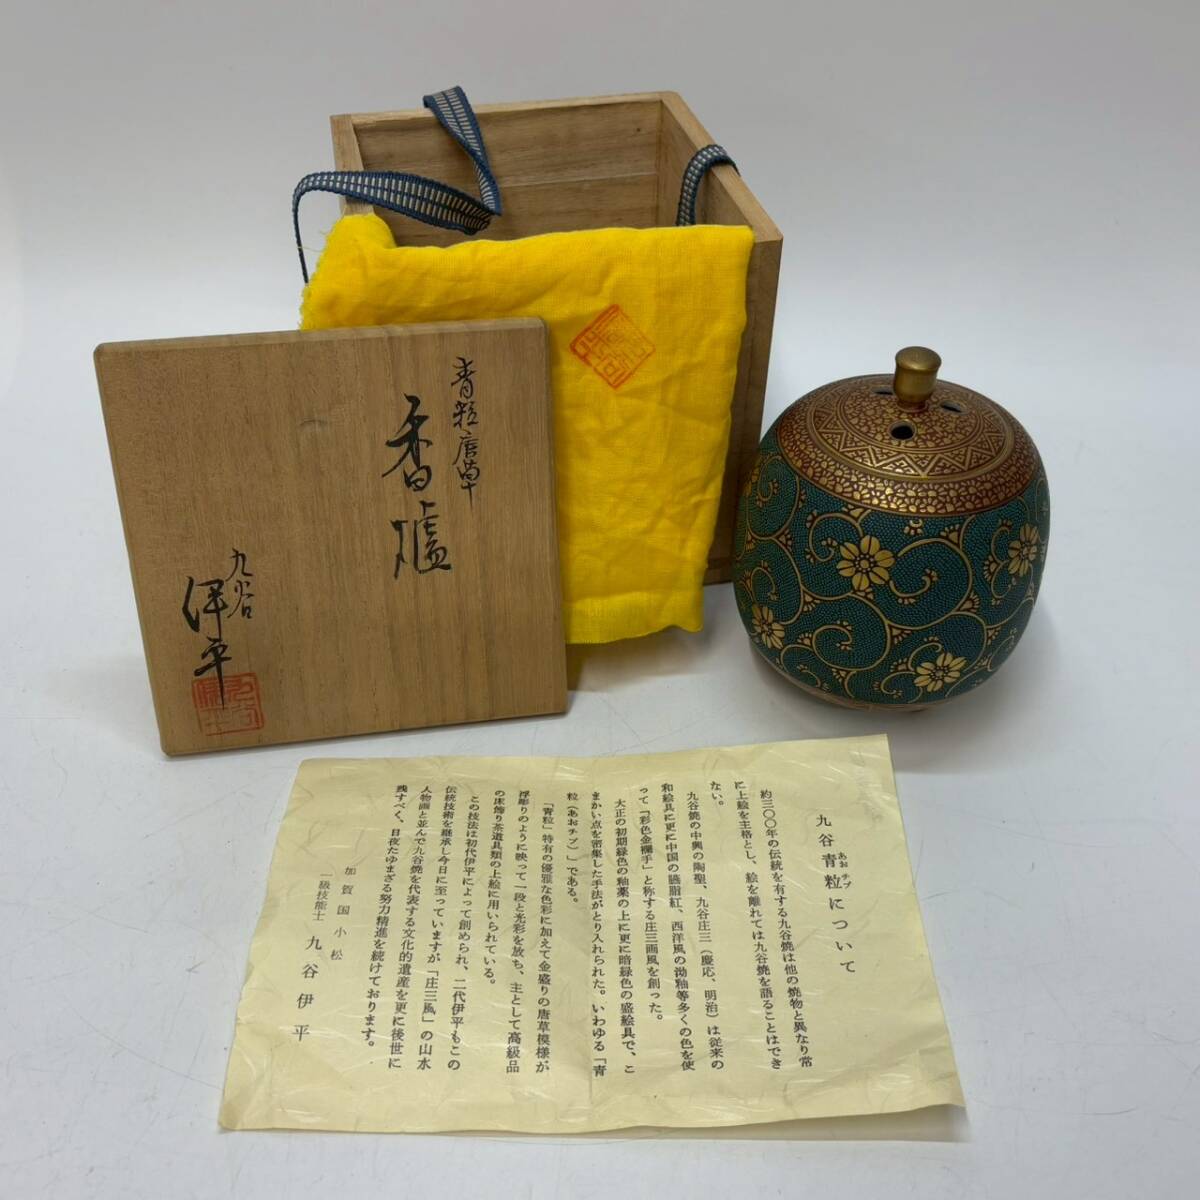 青粒唐草
香爐
九谷
伊平
九谷青粒について
あおチブ
約三〇〇年の伝統を有する九谷焼は他の焼物と異なり常
に上絵を主格とし、絵を離れては九谷焼を語ることはでき
ない。
九谷焼の中興の陶聖、九谷庄三(慶応、明治)は従来の
和絵具に更に中国の臙脂紅、西洋風の泑釉等多くの色を使
って「彩色金襴手」と称する庄三画風を創った。
大正の初期緑色の釉薬の上に更に暗緑色の盛絵具で、こ
まかい点を密集した手法がとり入れられた。いわゆる「青
粒(あおチブ)」である。
「青粒」特有の優雅な色彩に加えて金盛りの唐草模様が
浮彫りのように映って一段と光彩を放ち、主として高級品
の床飾り茶道具類の上絵に用いられている。
この技法は初代伊平によって創められ、二代伊平もこの
伝統技術を継承し今日に至っていますが「庄三風」の山水
人物画と並んで九谷焼を代表する文化的遺産を更に後世に
残すべく、日夜たゆまざる努力精進を続けております。
加賀国小松
一級技能士 九谷伊平